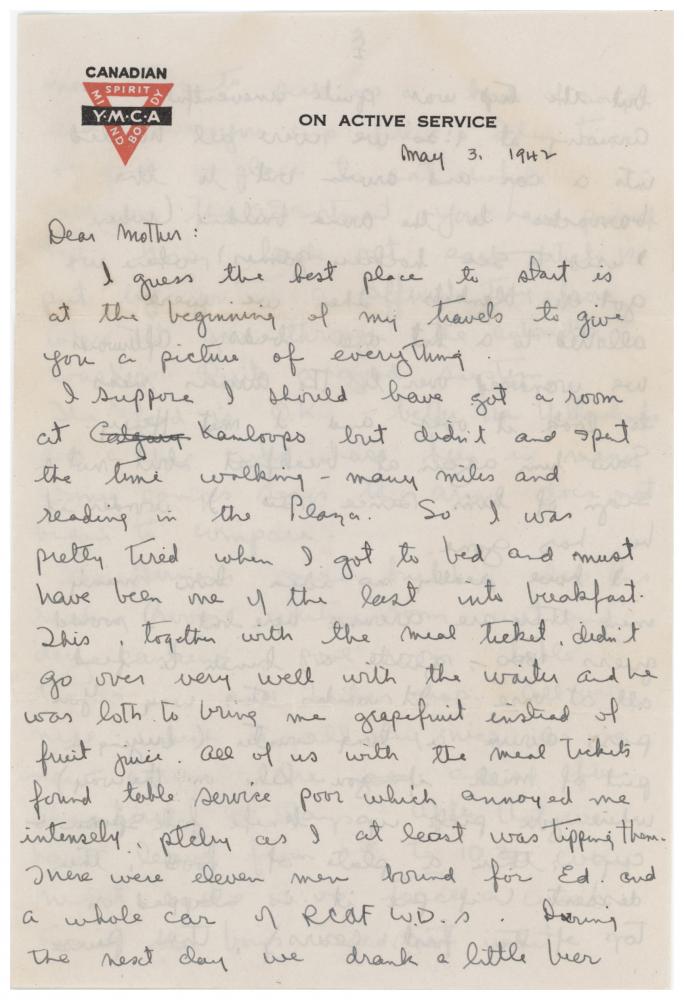 CANADIAN
SPIRIT
MIND
BODY
Y·M·C·A
ON ACTIVE SERVICE
May 3. 1942
Dear Mother:
I guess the best place to start is
at the beginning of my travels to give
you a picture of everything.
I suppose I should have got a room
at Calgary Kamloops but didn't and spent
the time walking - many miles and
reading in the Plaza. So I was
pretty tired when I got to bed and must
have been one of the last into breakfast.
This, together with the meal ticket, didn't
go over very well with the waiter and he
was loth to bring me grapefruit instead of
fruit juice. All of us with the meal tickets
found table service poor which annoyed me
intensely, as I at least was tipping them.
There were eleven men bound for Ed. and
a whole car of RCAF W.D.s. During
the next day we drank a little beer